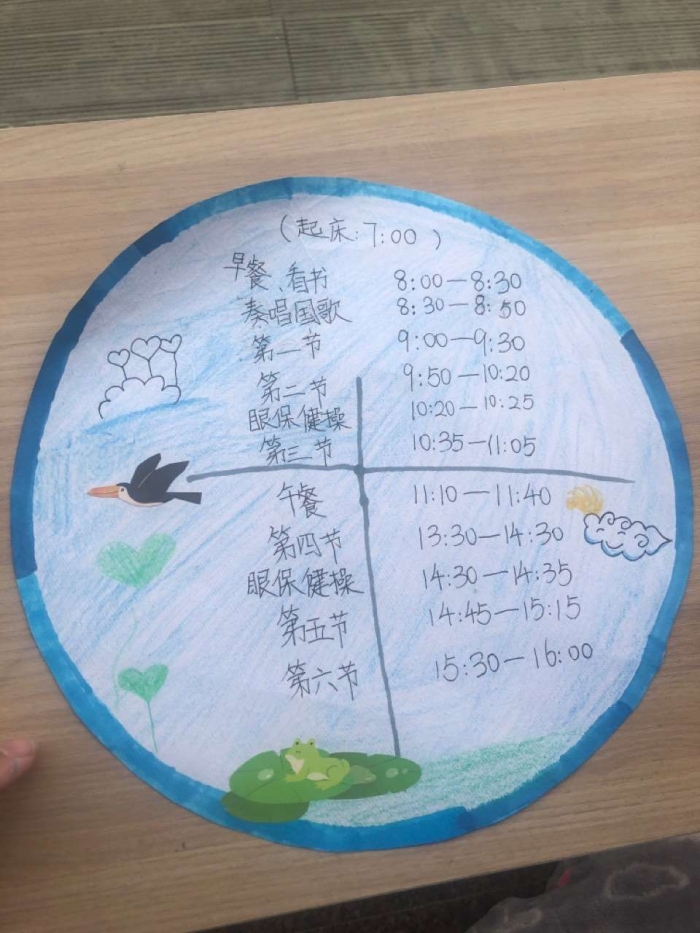 （起床：7:00）
早餐、看书 8:00—8:30
奏唱国歌 8:30—8:50
第一节 9:00—9:30
第二节 9:50—10:20
眼保健操 10:20—10:25
第三节 10:35—11:05
午餐 11:10—11:40
第四节 13:30—14:30
眼保健操 14:30—14:35
第五节 14:45—15:15
第六节 15:30—16:00